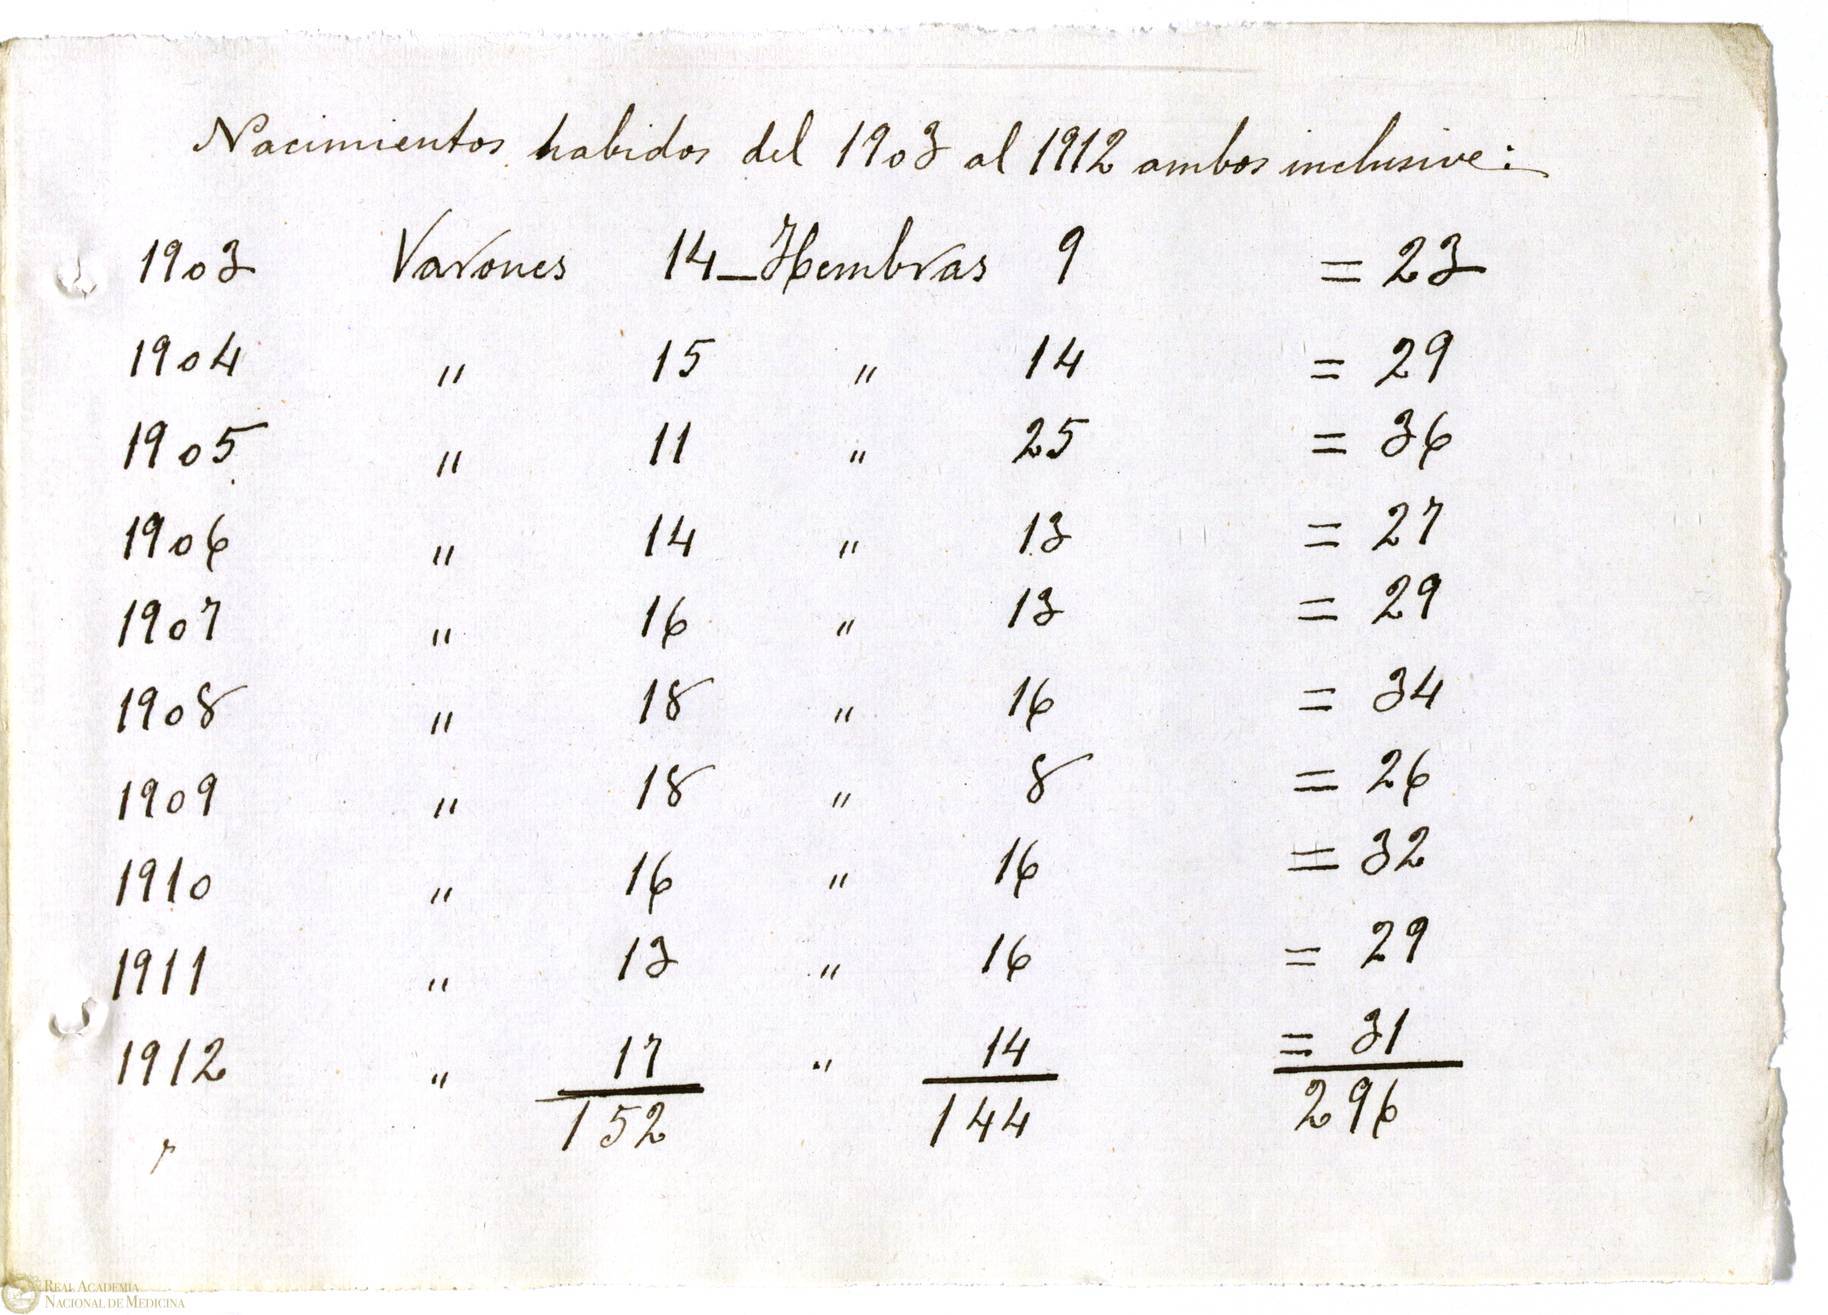 Nacimientos habidos del 1903 al 1912 ambos inclusive:
1903 Varones 14 – Hembras 9 = 23
1904 " 15 " 14 = 29
1905 " 11 " 25 = 36
1906 " 14 " 13 = 27
1907 " 16 " 13 = 29
1908 " 18 " 16 = 34
1909 " 18 " 8 = 26
1910 " 16 " 16 = 32
1911 " 13 " 16 = 29
1912 " 17 " 14 = 31
152 144 296
REAL ACADEMIA
NACIONAL DE MEDICINA